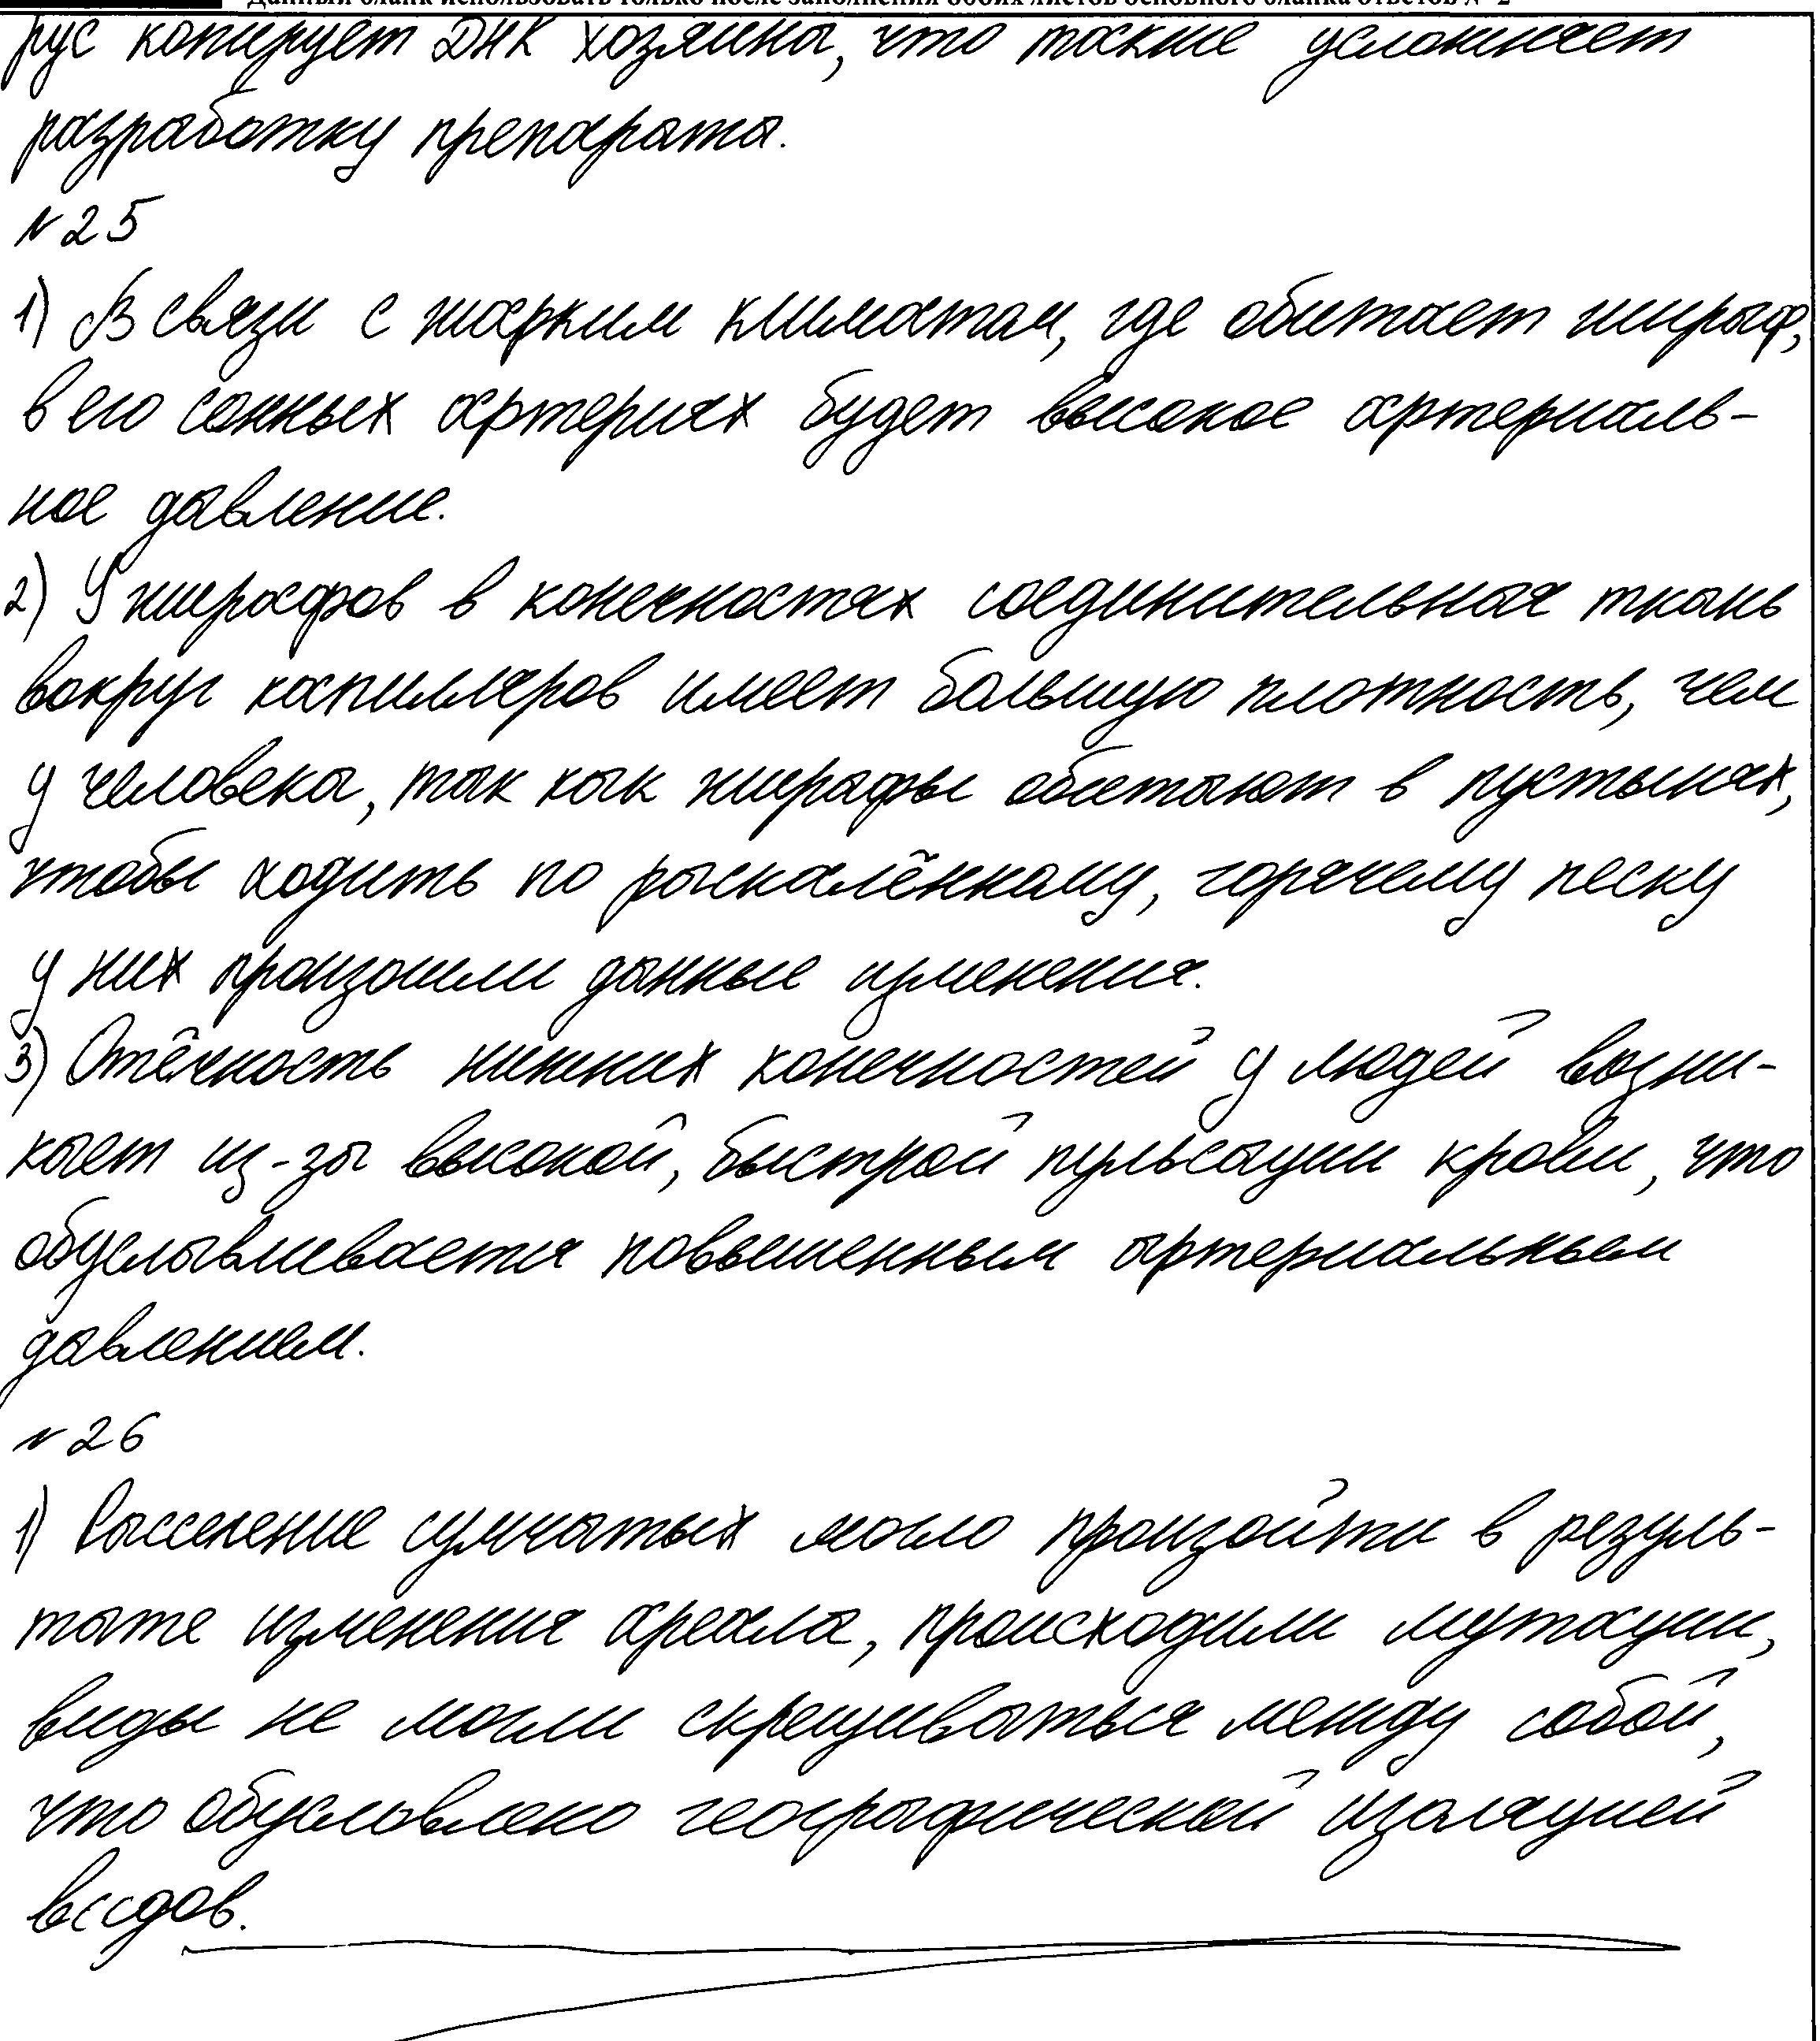 Данный бланк использовать только после заполнения обоих листов основного бланка ответов № 2
рус копирует ДНК хозяина, что также усложняет
разработку препарата.
№25
1) В связи с жарким климатом, где обитает жираф,
в его сонных артериях будет высокое артериаль-
ное давление.
2) У жирафов в конечностях соединительная ткань
вокруг капилляров имеет большую плотность, чем
у человека, так как жирафы обитают в пустынях,
чтобы ходить по раскалённому, горячему песку
у них произошли данные изменения.
3) Отёчность нижних конечностей у людей возни-
кает из-за высокой, быстрой пульсации крови, что
обуславливается повышенным артериальным
давлением.
№26
1) Расселение сумчатых могло произойти в резуль-
тате изменения ареала, происходили мутации,
виды не могли скрещиваться между собой,
что обусловлено географической изоляцией
видов.